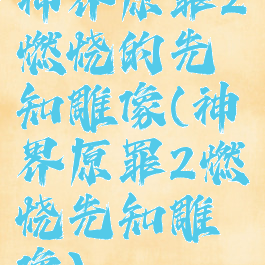 神界原罪2
燃烧的先
知雕像(神
界原罪2燃
烧先知雕
像)